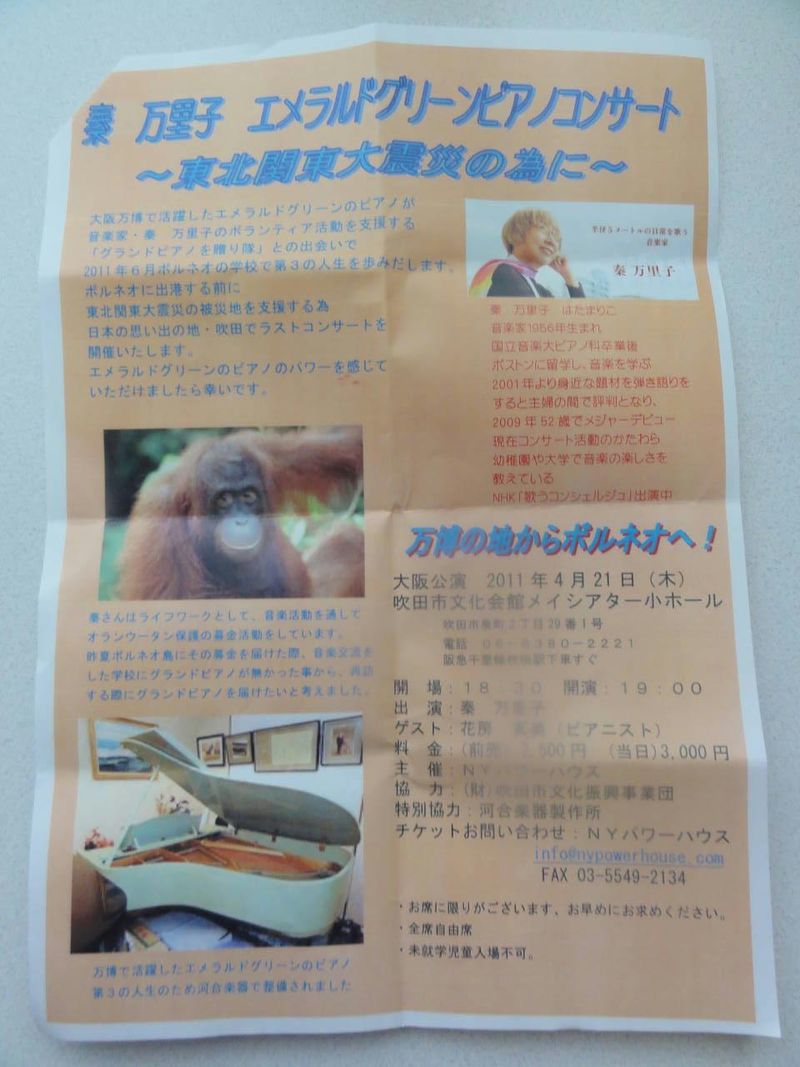 秦 万里子 エメラルドグリーンピアノコンサート
～東北関東大震災の為に～
大阪万博で活躍したエメラルドグリーンのピアノが
音楽家・秦 万里子のボランティア活動を支援する
「グランドピアノを贈り隊」との出会いで
2011年6月ボルネオの学校で第3の人生を歩みだします。
ボルネオに出港する前に
東北関東大震災の被災地を支援する為
日本の思い出の地・吹田でラストコンサートを
開催いたします。
エメラルドグリーンのピアノのパワーを感じて
いただけましたら幸いです。
半径5メートルの日常を歌う
音楽家
秦 万里子
秦 万里子 はたまりこ
音楽家1956年生まれ
国立音楽大ピアノ科卒業後
ボストンに留学し、音楽を学ぶ
2001年より身近な題材を弾き語りを
すると主婦の間で評判となり、
2009年52歳でメジャーデビュー
現在コンサート活動のかたわら
幼稚園や大学で音楽の楽しさを
教えている
NHK「歌うコンシェルジュ」出演中
秦さんはライフワークとして、音楽活動を通して
オランウータン保護の募金活動をしています。
昨夏ボルネオ島にその募金を届けた際、音楽交流を
した学校にグランドピアノが無かった事から、再訪
する際にグランドピアノを届けたいと考えました。
万博で活躍したエメラルドグリーンのピアノ
第3の人生のため河合楽器で整備されました
万博の地からボルネオへ！
大阪公演 2011年4月21日（木）
吹田市文化会館メイシアター小ホール
吹田市泉町2丁目29番1号
電話 06-6380-2221
阪急千里線吹田駅下車すぐ
開 場：18:30 開演：19：00
出 演：秦 万里子
ゲスト：花房 （ピアニスト）
料 金：(前売) 2,500円 (当日)3,000円
主 催：ＮＹパワーハウス
協 力：(財)吹田市文化振興事業団
特別協力：河合楽器製作所
チケットお問い合わせ：ＮＹパワーハウス
info@nypowerhouse.com
FAX 03-5549-2134
・お席に限りがございます、お早めにお求めください。
・全席自由席
・未就学児童入場不可。